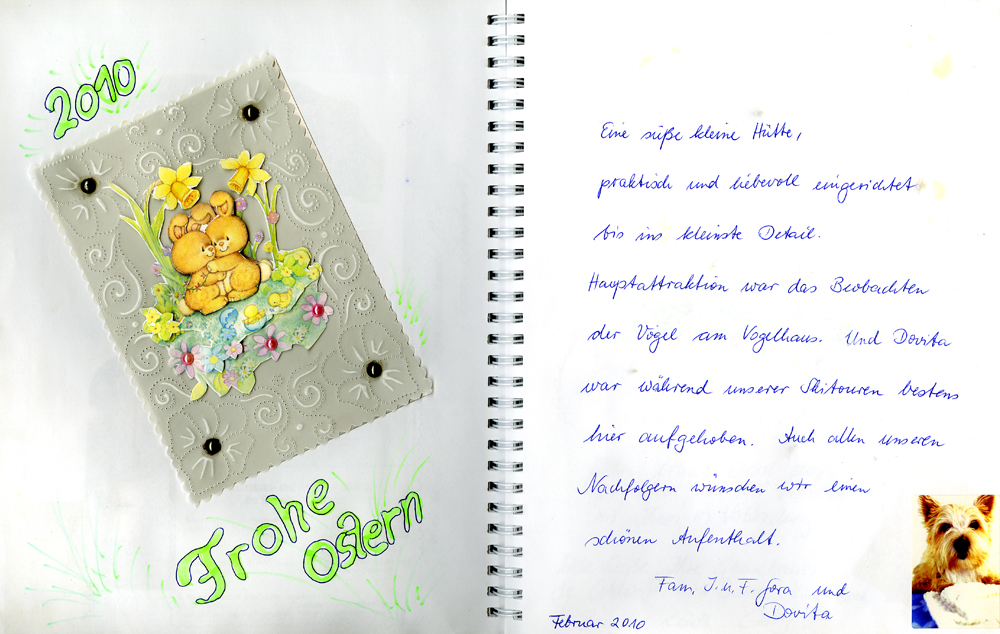 2010
Frohe
Ostern
Eine süße kleine Hütte,
praktisch und liebevoll eingerichtet
bis ins kleinste Detail.
Hauptattraktion war das Beobachten
der Vögel am Vogelhaus. Und Dovita
war während unserer Skitouren bestens
hier aufgehoben. Auch allen unseren
Nachfolgern wünschen wir einen
schönen Aufenthalt.
Fam. I. u. F. Gora und
Dovita
Februar 2010